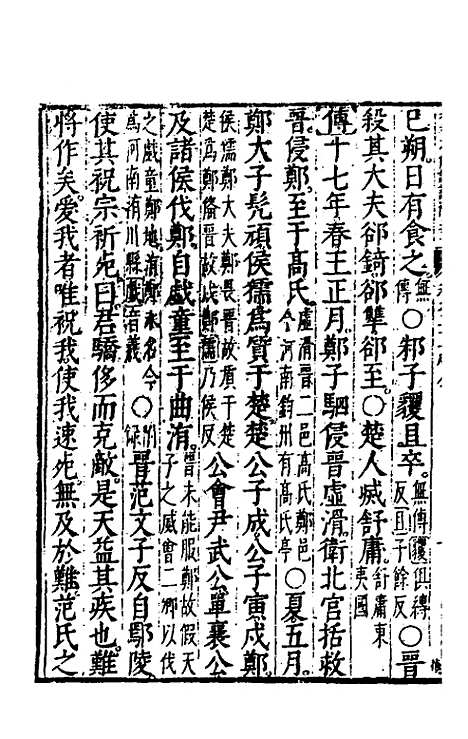 巳朔日有食之無傳○邾子貜且卒無傳貜俱縛反且子餘反○晉
殺其大夫郤錡郤犫郤至○楚人滅舒庸舒庸東夷國
傳十七年春王正月鄭子駟侵晉虛滑衛北宮括救
晉侵鄭至于高氏虛滑晉二邑高氏鄭邑今河南鈞州有高氏亭○夏五月
鄭大子髡頑侯獳為質于楚楚公子成公子寅戍鄭
侯獳鄭大夫鄭畏晉故質于楚楚為鄭備晉故戍鄭獳乃侯反公會尹武公單襄公
及諸侯伐鄭自戲童至于曲洧晉未能服鄭故假天子之威會二卿以伐
之戲童鄭地洧鄭水名今為河南洧川縣戲音羲○晉范文子反自鄢陵
使其祝宗祈死曰君驕侈而克敵是天益其疾也難
將作矣愛我者唯祝我使我速死無及於難范氏之